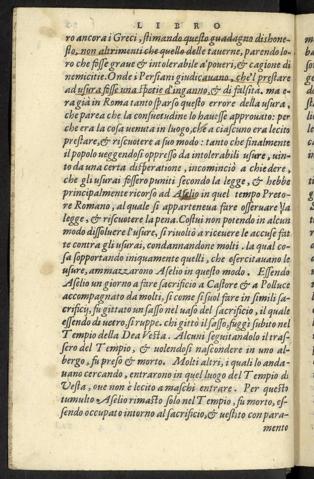 LIBRO
ro ancora i Greci, stimando questo guadagno dishone-
sto, non altrimenti che quello delle tauerne, parendo lo-
ro che fosse graue & intolerabile a' poueri, & cagione di
nemicitie. Onde i Persiani giudicauano, che'l prestare
ad usura fosse una spetie d'inganno, & di falsità. ma e-
ra gia in Roma tanto sparso questo errore della usura,
che parea che la consuetudine lo hauesse approuato: per
che era la cosa uenuta in luogo, che a ciascuno era lecito
prestare, & riscuotere a suo modo: tanto che finalmente
il popolo ueggendosi oppresso da intolerabili usure, uin-
to da una certa disperatione, incominciò a chiedere,
che gli usurai fossero puniti secondo la legge, & hebbe
principalmente ricorso ad Aselio in quel tempo Preto-
re Romano, al quale si apparteneua fare osseruare la
legge, & riscuotere la pena. Costui non potendo in alcun
modo dissoluere l'usure, si riuoltò a riceuere le accuse fat
te contra gli usurai, condannandone molti. la qual co-
sa sopportando iniquamente quelli, che esercitauano le
usure, ammazzarono Aselio in questo modo. Essendo
Aselio un giorno a fare sacrificio a Castore & a Polluce
accompagnato da molti, si come si suol fare in simili sa-
crificij, fu gittato un sasso nel uaso del sacrificio, il quale
essendo di uetro si ruppe. chi gittò il sasso, fuggì subito nel
Tempio della Dea Vesta. Alcuni seguitandolo il tras-
sero del Tempio, & uolendosi nascondere in uno al-
bergo, fu preso & morto. Molti altri, i quali lo anda-
uano cercando, entrarono in quel luogo del Tempio di
Vesta, oue non è lecito a maschi entrare. Per questo
tumulto Aselio rimasto solo nel Tempio, fu morto, es-
sendo occupato intorno al sacrificio, & uestito con para-
mento